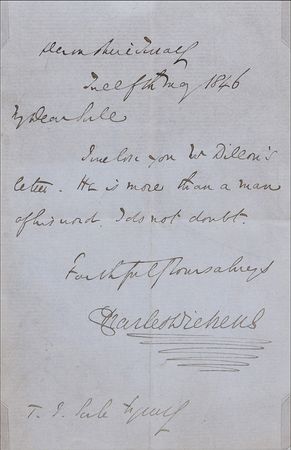 Devonshire Terrace
Twelfth May 1846
My Dear Sale
I inclose you Mr Dillon's
letter. He is more than a man
of his word, I do not doubt.
Faithfully Yours always
Charles Dickens
T. I. Sale Esquire